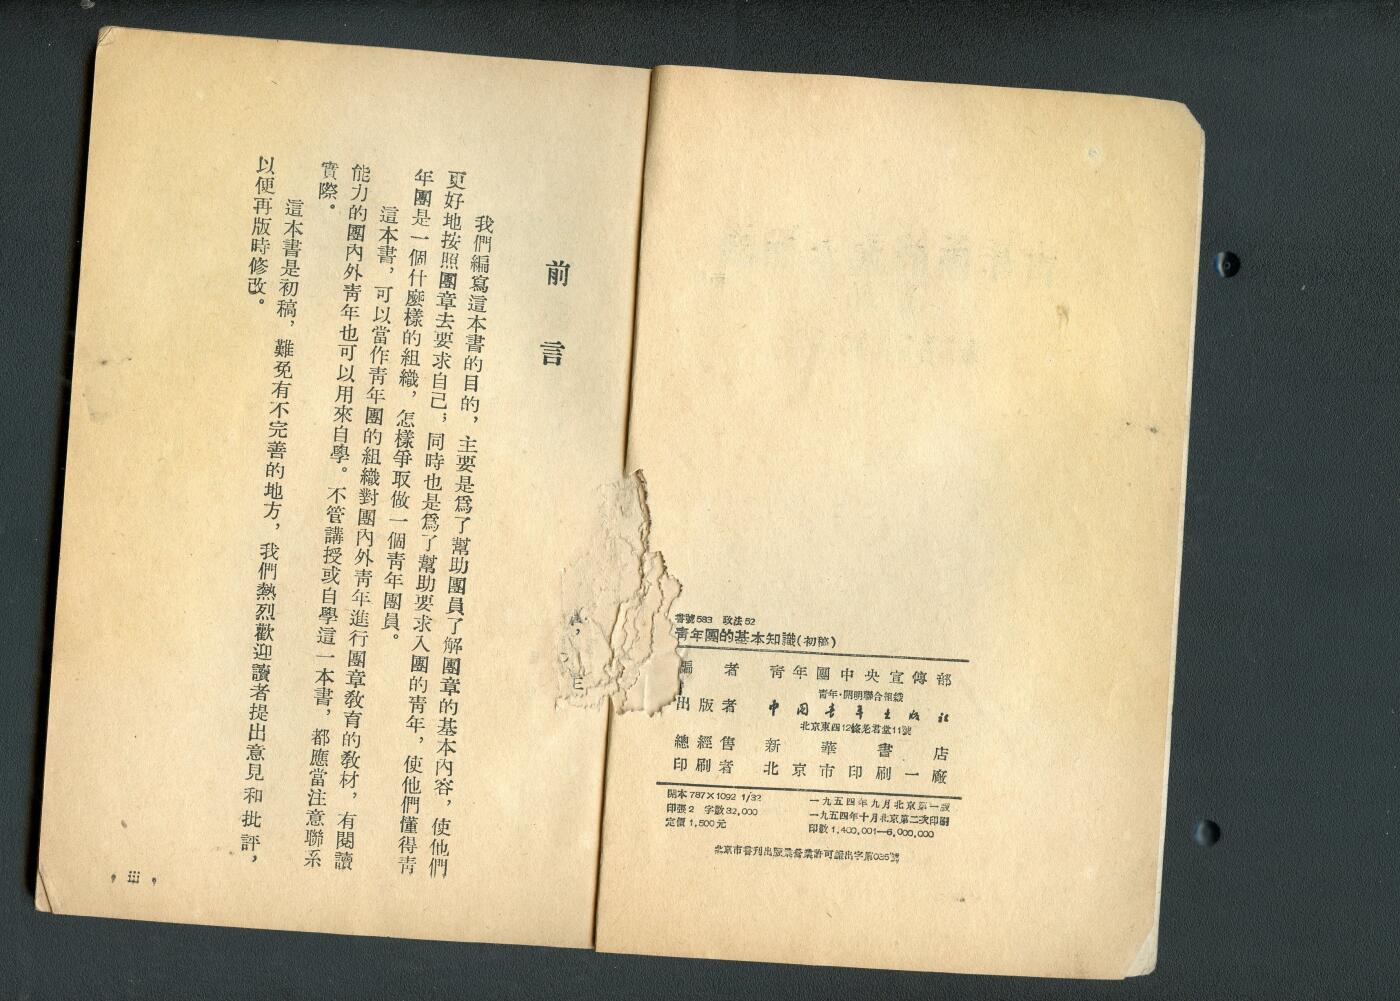 書號583 政法52
青年團的基本知識(初稿)
編者 青年團中央宣傳部
青年·開明聯合組織
出版者 中國青年出版社
北京東四12條老君堂11號
總經售 新華書店
印刷者 北京市印刷一廠
開本787×1092 1/32
印張2 字數32,000
定價1,500元
一九五四年九月北京第一版
一九五四年十月北京第二次印刷
印數1,400,001—6,000,000
北京市書刊出版業營業許可證出字第036號
前言
我們編寫這本書的目的，主要是爲了幫助團員了解團章的基本內容，使他們
更好地按照團章去要求自己；同時也是爲了幫助要求入團的靑年，使他們懂得靑
年團是一個什麼樣的組織，怎樣爭取做一個靑年團員。
這本書，可以當作靑年團的組織對團內外靑年進行團章敎育的敎材，有閱讀
能力的團內外靑年也可以用來自學。不管講授或自學這一本書，都應當注意聯系
實際。
這本書是初稿，難免有不完善的地方，我們熱烈歡迎讀者提出意見和批評，
以便再版時修改。